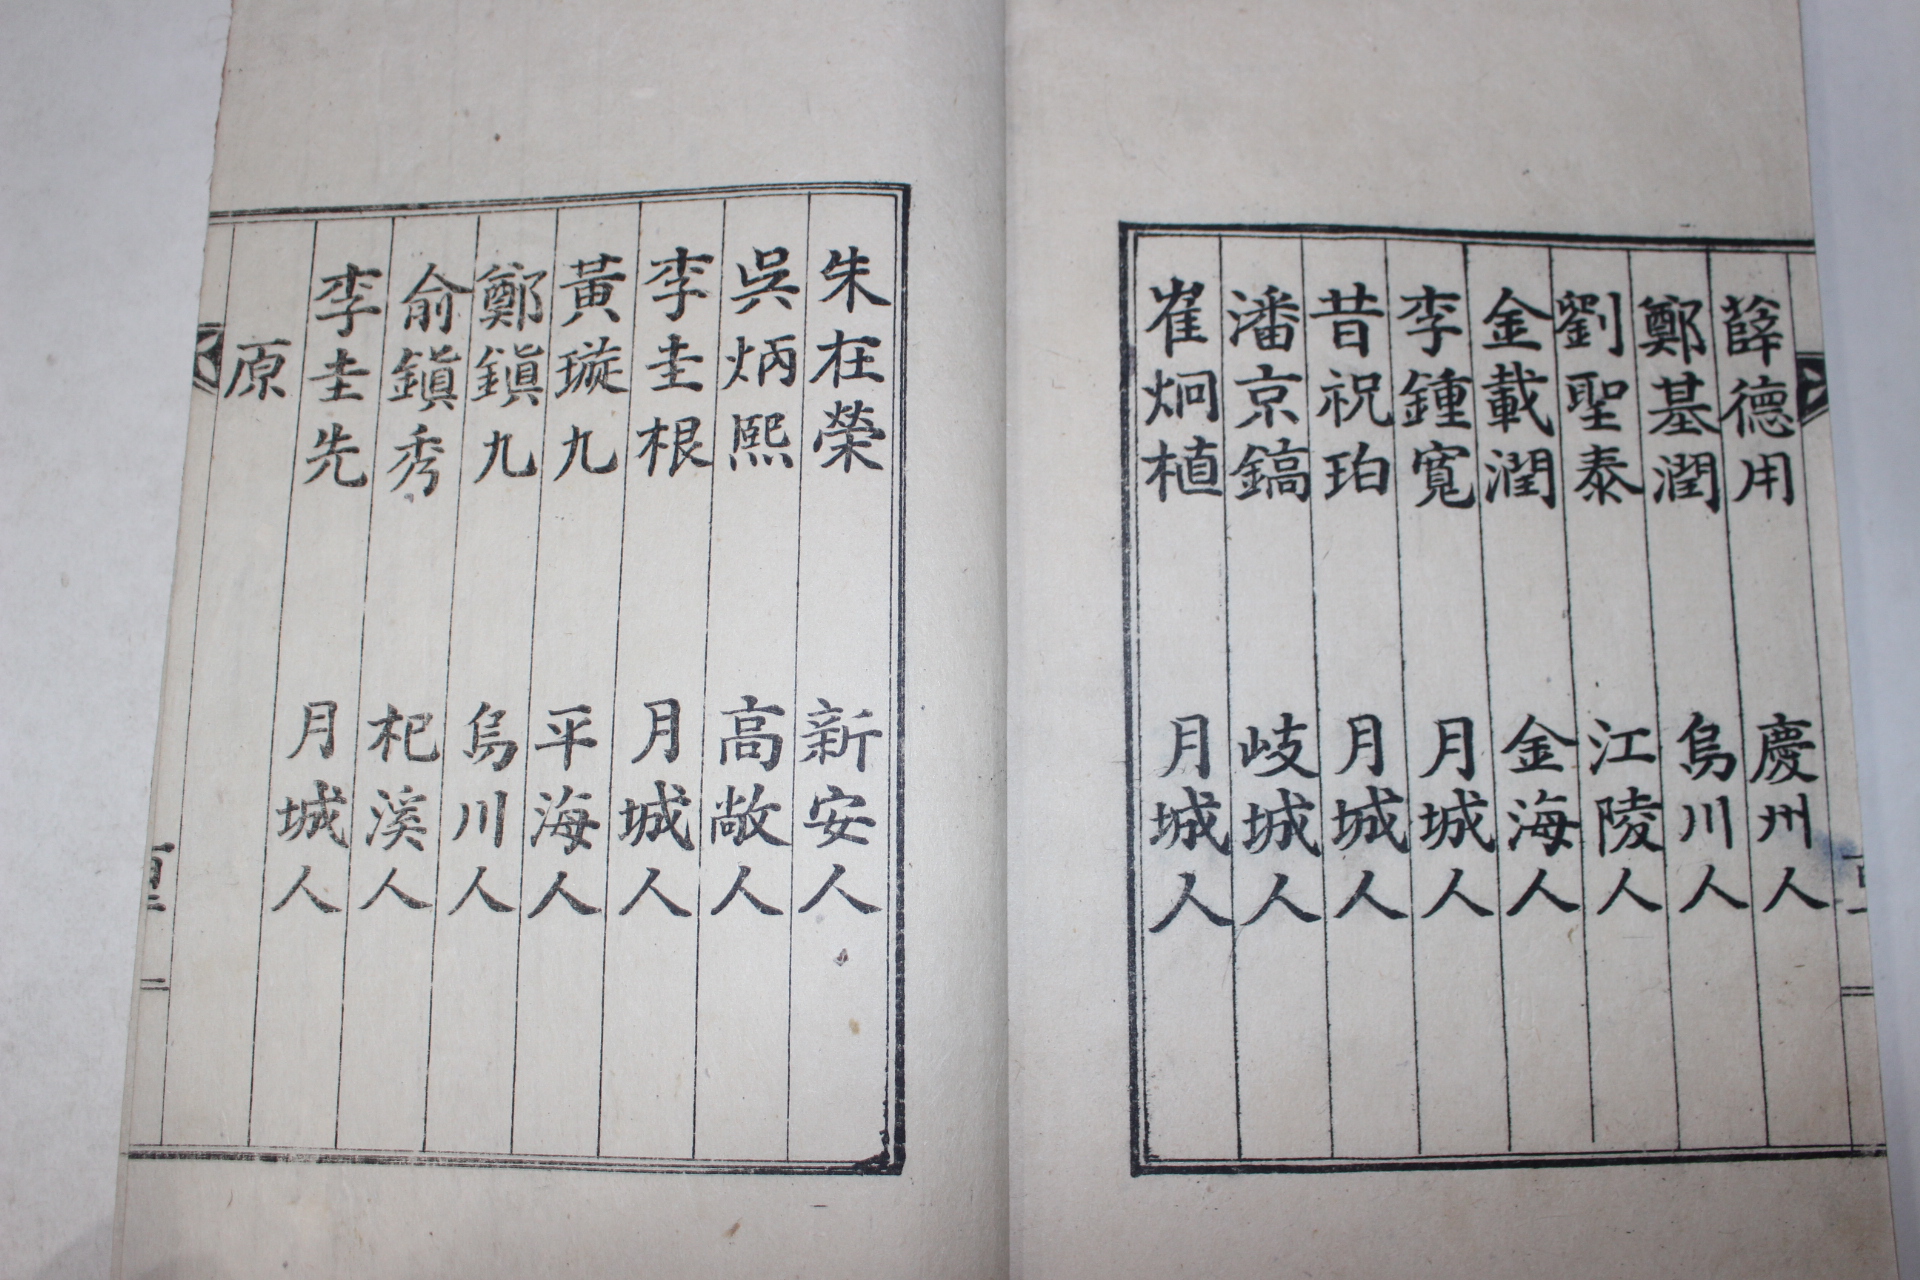 薛德用 慶州人
鄭基潤 烏川人
劉聖泰 江陵人
金載潤 金海人
李鍾寬 月城人
昔祝珀 月城人
潘京鎬 岐城人
崔炯植 月城人
朱在榮 新安人
吳炳熙 高敞人
李圭根 月城人
黃璇九 平海人
鄭鎭九 烏川人
俞鎭秀 杞溪人
李圭先 月城人
原